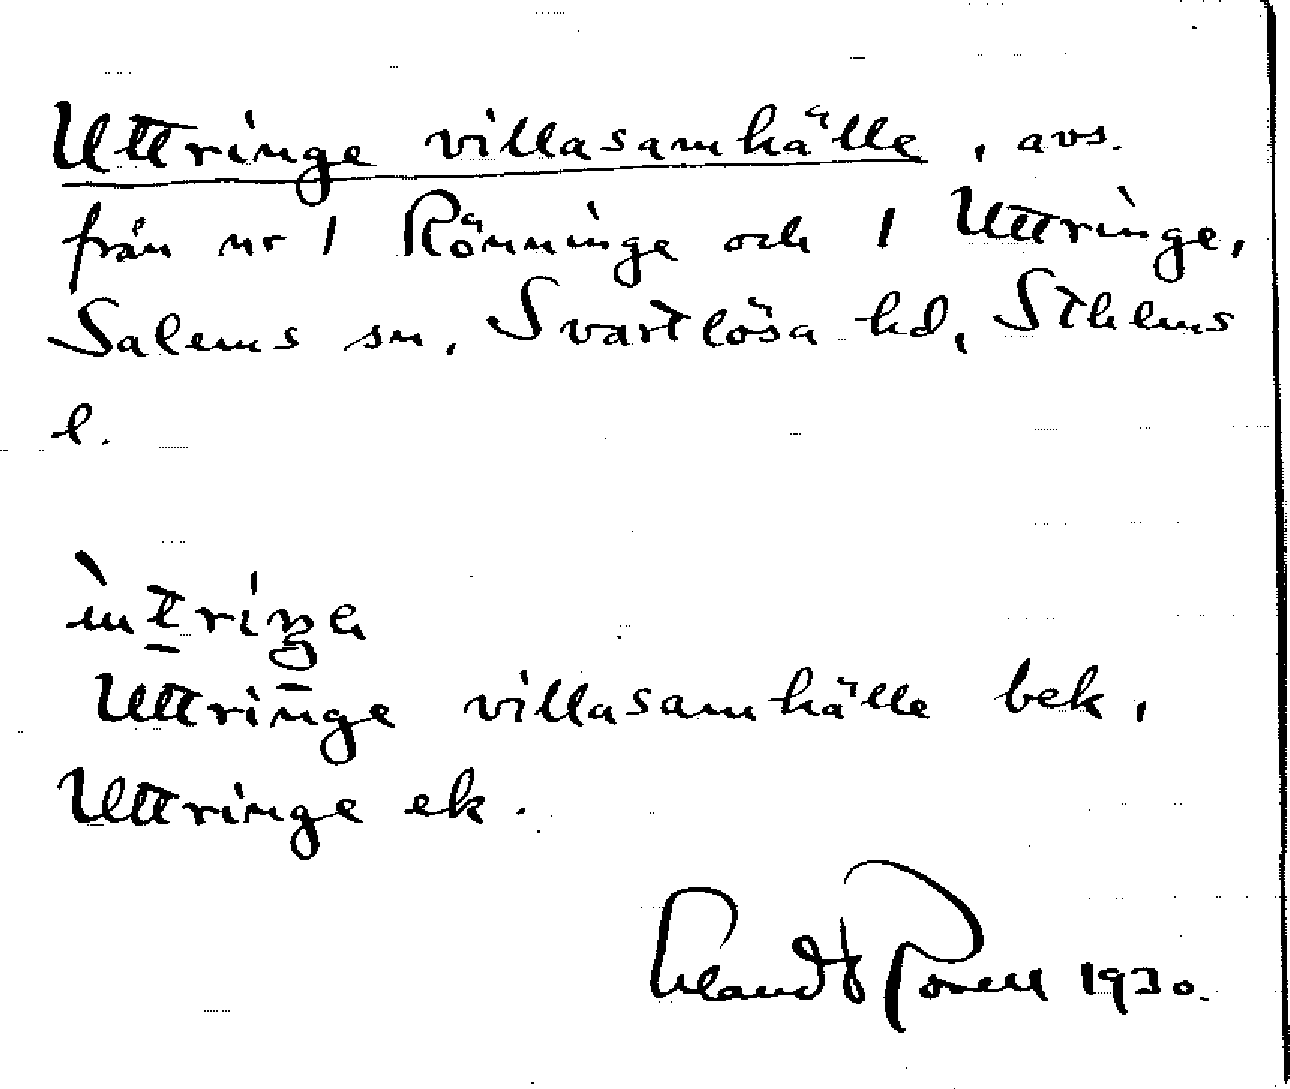 Uttringe villasamhälle, avs.
från nr 1 Rönninge och 1 Uttringe,
Salems sn, Svartlösa hd, Sthlms
l.
Uttringe villasamhälle bek,
Uttringe ek.
Erland Rosell 1930.